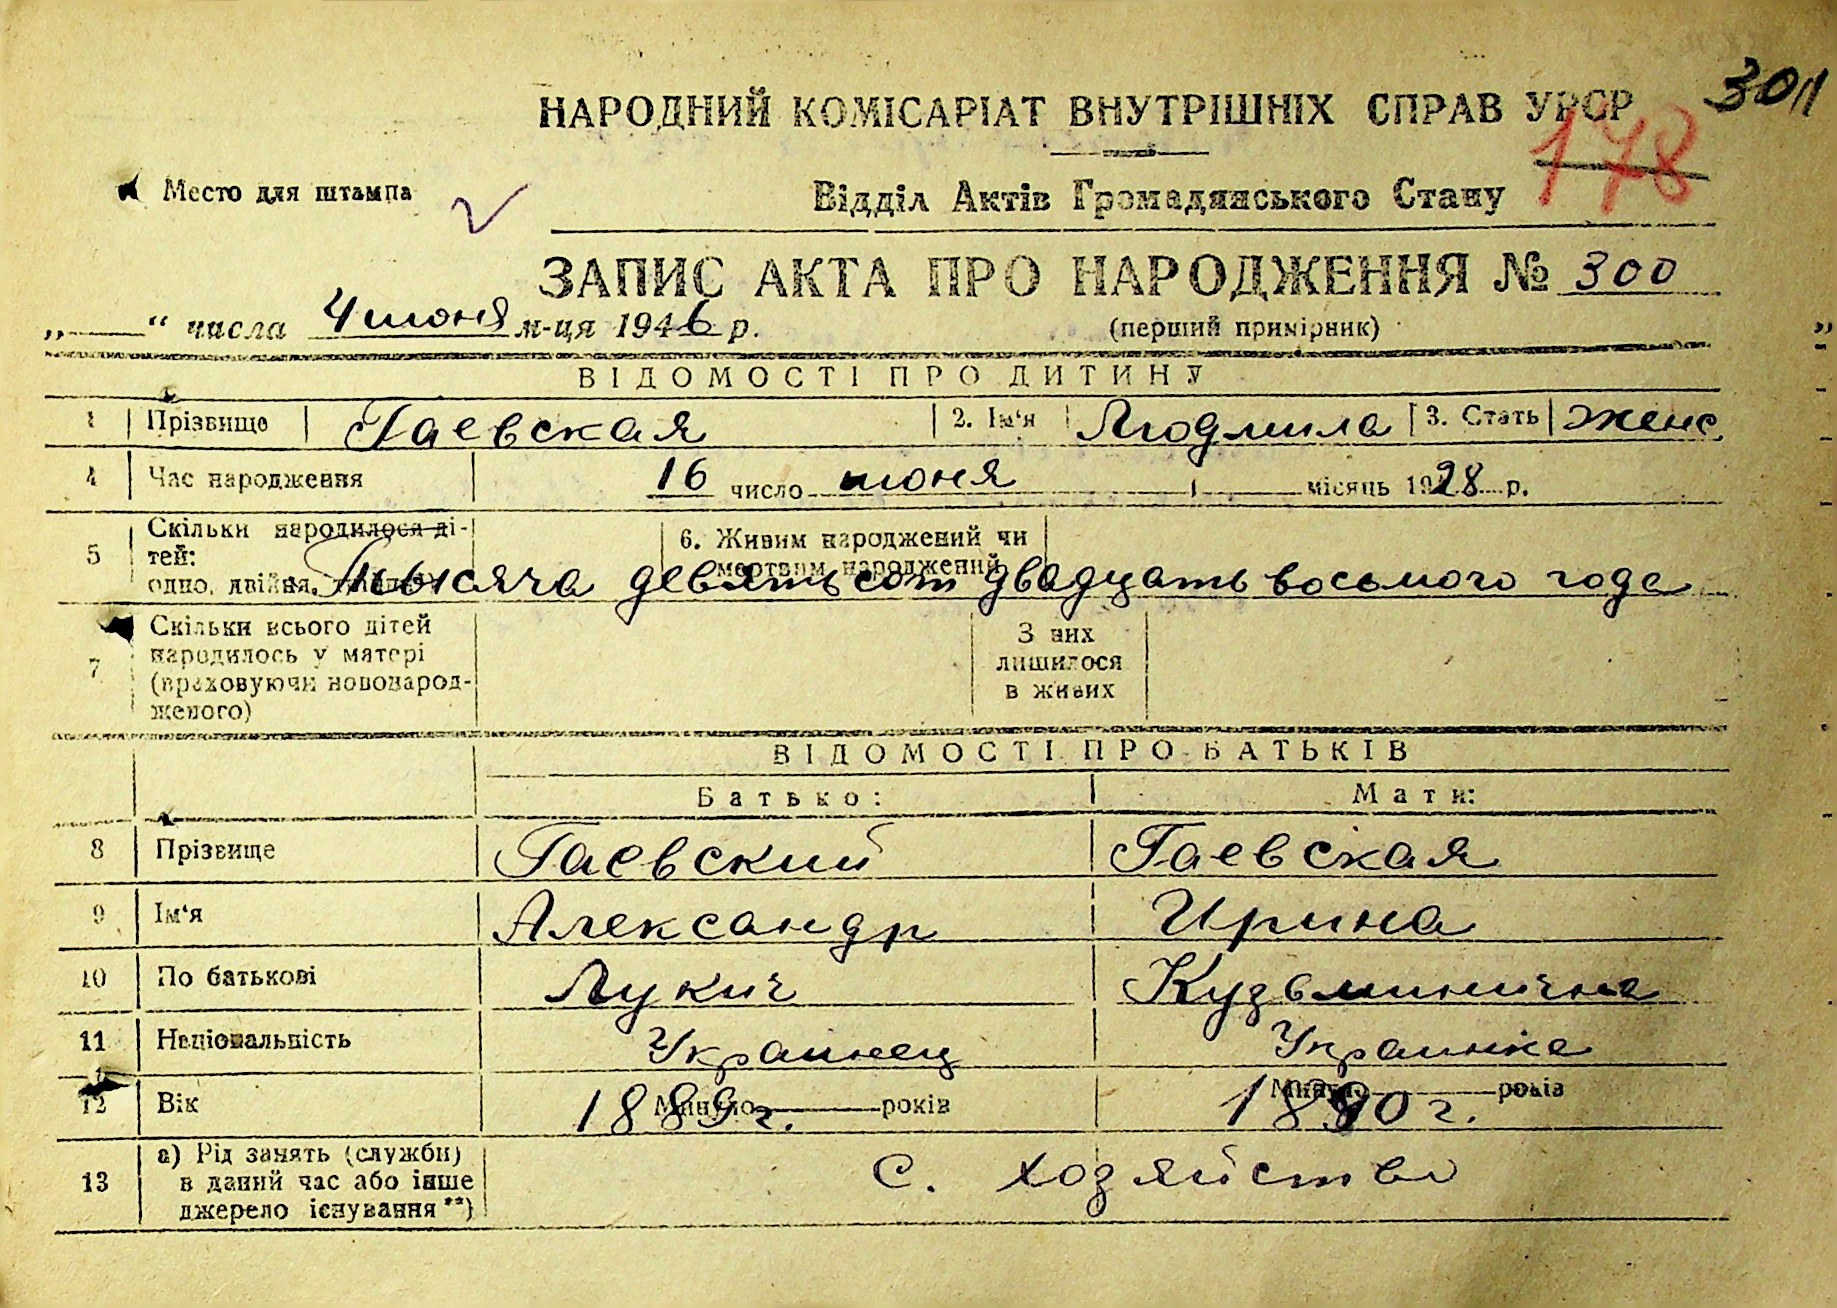 301
НАРОДНИЙ КОМІСАРІАТ ВНУТРІШНІХ СПРАВ УРСР
178
Место для штампа
Відділ Актів Громадянського Стану
ЗАПИС АКТА ПРО НАРОДЖЕННЯ № 300
„ “ числа 4 июня м-ця 1946 р.
(перший примірник)
ВІДОМОСТІ ПРО ДИТИНУ
1 Прізвище Гаевская 2. Ім‘я Людмила 3. Стать женс.
4 Час народження 16 число июня місяць 1928 р.
5 Скільки народилося ді-
тей:
одно, двійня,
6. Живим народжений чи
мертвим народжений
Тысяча девятьсот двадцать восьмого года
7 Скільки всього дітей
народилось у матері
(враховуючи новонарод-
женого)
З них
лишилося
в живих
ВІДОМОСТІ ПРО БАТЬКІВ
Батько: Мати:
8 Прізвище Гаевский Гаевская
9 Ім‘я Александр Ирина
10 По батькові Лукич Кузьминична
11 Національність Украинец Украинка
12 Вік Минуло років 1889 г. Минуло років 1890 г.
13 а) Рід занять (служби)
в даний час або інше
джерело існування **)
С. хозяйство